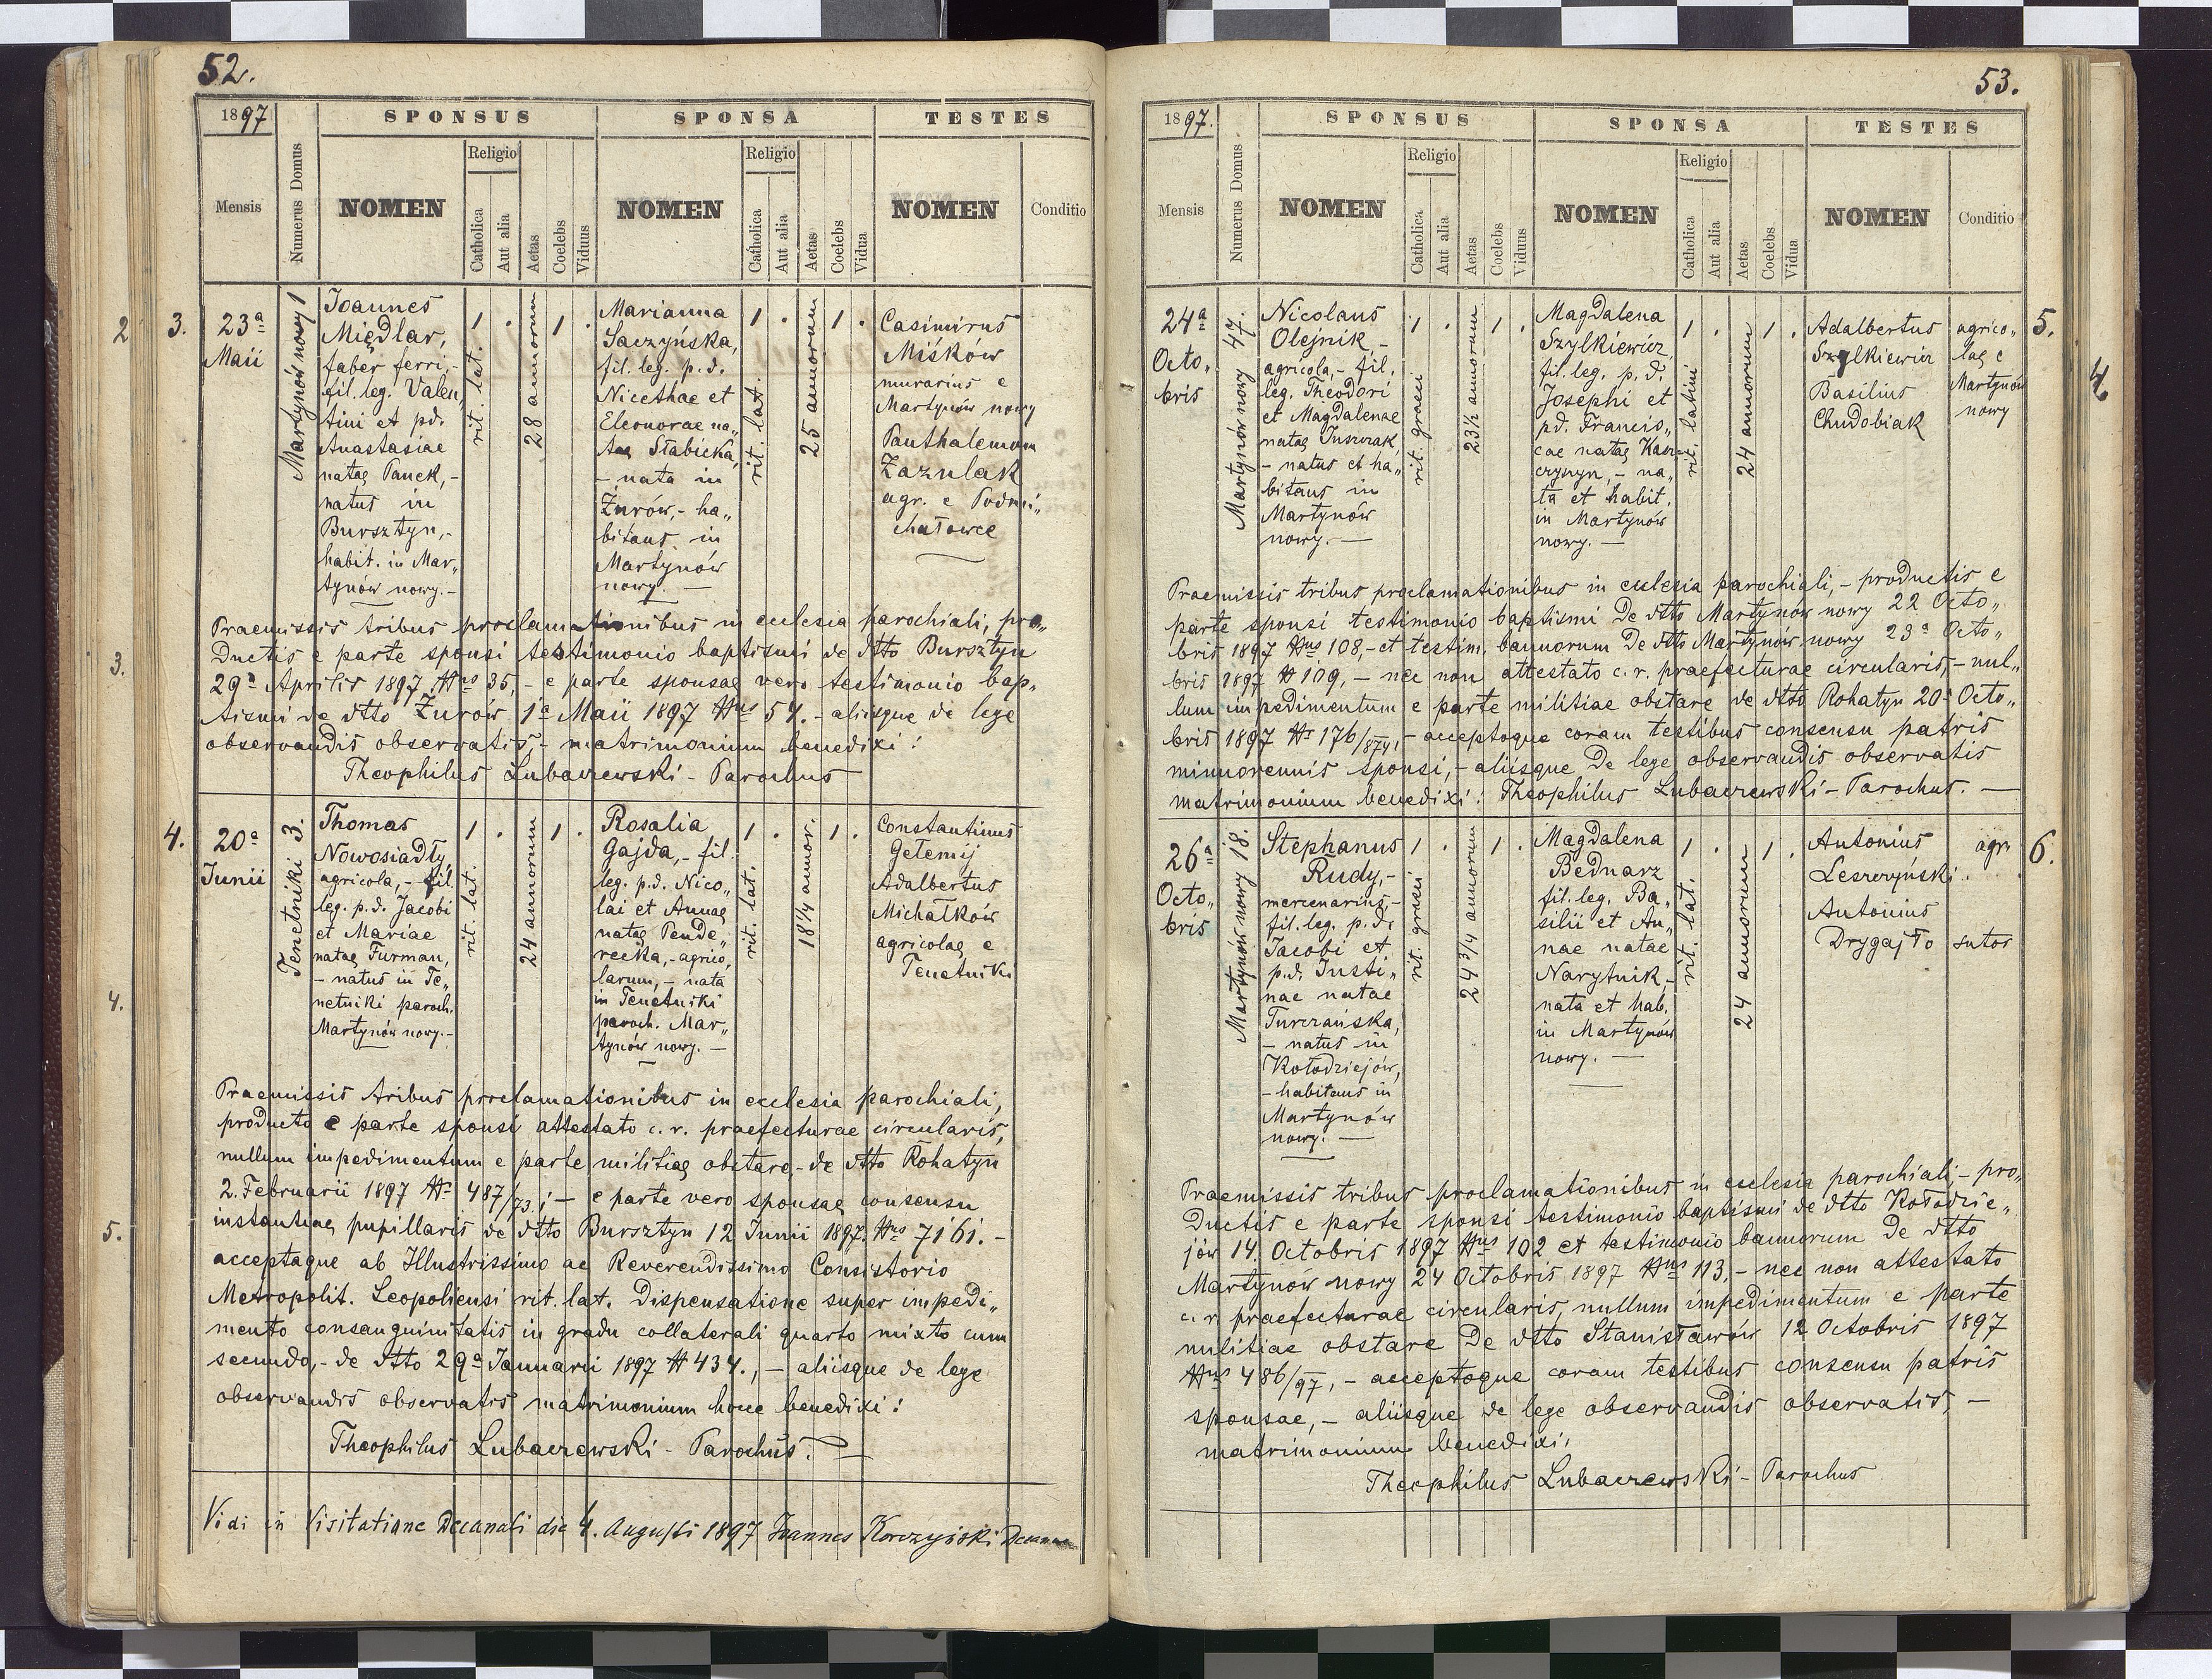 52.
1897
SPONSUS
SPONSA
TESTES
Mensis
Numerus Domus
NOMEN
Religio
Catholica
Aut alia
Aetas
Coelebs
Viduus
NOMEN
Religio
Catholica
Aut alia
Aetas
Coelebs
Vidua
NOMEN
Conditio
2
3.
23ª
Maii
Martynów nowy 1
Joannes
Międlar,
faber ferri,-
fil. leg. Valen„
tini et pd.
Anastasiae
natae Panek,-
natus in
Bursztyn,-
habit. in Mar„
tynów nowy.-
1
.
rit. lat.
28 annorum
1
.
Marianna
Saczyńska,
fil. leg. p.d.
Nicethae et
Eleonorae na„
tae Słabicka,
- nata in
Żurów,- ha„
bitans in
Martynów
nowy. —
1
.
rit. lat.
25 annorum
1
.
Casimirus
Miśków
murarius e
Martynów nowy
Panthalemon
Zazulak
agr. e Podmi„
chałowce
3.
Praemissis tribus proclamationibus in ecclesia parochiali, pro„
ductis e parte sponsi testimonio baptismi de dtto Bursztyn
29ª Aprilis 1897 Nus 35,- e parte sponsae vero testimonio bap„
tismi de dtto Żurów 1ª Maii 1897 Nus 57.- aliisque de lege
observandis observatis,- matrimonium benedixi:
Theophilus Lubaczewski - Parochus
4.
20ª
Junii
Tenetniki 3.
Thomas
Nowosiadły,
agricola,- fil.
leg. p.d. Jacobi
et Mariae
natae Furman,
- natus in Te„
netniki paroch.
Martynów nowy.-
1
.
rit. lat.
24 annorum
1
.
Rosalia
Gajda,- fil.
leg. p.d. Nico„
lai et Annae
natae Pende„
recka,- agrico„
larum,- nata
in Tenetniki
paroch. Mar„
tynów nowy. —
1
.
rit. lat.
18 1/4 annor.
1
.
Constantinus
Getemij
Adalbertus
Michałków
agricolae e
Tenetniki
4.
Praemissis tribus proclamationibus in ecclesia parochiali,
producto e parte sponsi attestato c. r. praefecturae circularis,
nullum impedimentum e parte militiae obstare,- de dtto Rohatyn
2. Februarii 1897 Nr 487/73.;- e parte vero sponsae consensu
5.
instantiae pupillaris de dtto Bursztyn 12 Junii 1897. Nus 7161.-
acceptaque ab Illustrissimo ac Reverendissimo Consistorio
Metropolit. Leopoliensi rit. lat. dispensatione super impedi„
mento consanguinitatis in gradu collaterali quarto mixto cum
secundo,- de dtto 29ª Januarii 1897 N 434.,- aliisque de lege
observandis observatis matrimonium hocce benedixi:
Theophilus Lubaczewski - Parochus. —
Vidi in Visitatione Decanali die 4. Augusti 1897 Joannes Korczyński Decanus
53.
1897.
SPONSUS
SPONSA
TESTES
Mensis
Numerus Domus
NOMEN
Religio
Catholica
Aut alia
Aetas
Coelebs
Viduus
NOMEN
Religio
Catholica
Aut alia
Aetas
Coelebs
Vidua
NOMEN
Conditio
24ª
Octo„
bris
Martynów nowy 47.
Nicolaus
Olejnik -
agricola,- fil.
leg. Theodori
et Magdalenae
natae Juszczak,
- natus et ha„
bitans in
Martynów
nowy. —
1
.
rit. graeci
23 1/2 annorum
1
.
Magdalena
Szylkiewicz,
fil. leg. p. d.
Josephi et
pd. Francis„
cae natae Kasz
czyszyn,- na„
ta et habit.
in Martynów
nowy. —
1
.
rit. latini
24 annorum
1
.
Adalbertus
Szylkiewicz
Basilius
Chudobiak
agrico„
lae e
Martynów
nowy
5.
4.
Praemissis tribus proclamationibus in ecclesia parochiali,- productis e
parte sponsi testimonio baptismi de dtto Martynów nowy 22 Octo„
bris 1897 Nus 108,- et testim. bannorum de dtto Martynów nowy 23ª Octo„
bris 1897 N 109,- nec non attestato c. r. praefecturae circularis,- nul„
lum impedimentum e parte militiae obstare de dtto Rohatyn 20ª Octo„
bris 1897 Nr 176/874,- acceptoque coram testibus consensu patris
minnorennis sponsi,- aliisque de lege observandis observatis
matrimonium benedixi: Theophilus Lubaczewski - Parochus. —
26ª
Octo„
bris
Martynów nowy 18.
Stephanus
Rudy,-
mercenarius,-
fil. leg. p.d.
Jacobi et
p.d. Justi„
nae natae
Turzańska,
- natus in
Kołodziejów,
- habitans in
Martynów
nowy. —
1
.
rit. graeci
24 3/4 annorum
1
.
Magdalena
Bednarz
fil. leg. Ba„
silii et An„
nae natae
Narytnik,-
nata et hab.
in Martynów
nowy. —
1
.
rit. lat.
24 annorum
1
.
Antonius
Leszczyński.
Antonius
Drygajło
agr.
sutor
6.
Praemissis tribus proclamationibus in ecclesia parochiali,- pro„
ductis e parte sponsi testimonio baptismi de dtto Kołodzie„
jów 14. Octobris 1897 Nus 102 et testimonio bannorum de dtto
Martynów nowy 24 Octobris 1897 Nus 113,- nec non attestato
c. r. praefecturae circularis, nullum impedimentum e parte
militiae obstare de dtto Stanisławów 12 Octobris 1897
Nus 486/97,- acceptoque coram testibus consensu patris
sponsae,- aliisque de lege observandis observatis, —
matrimonium benedixi,
Theophilus Lubaczewski - Parochus